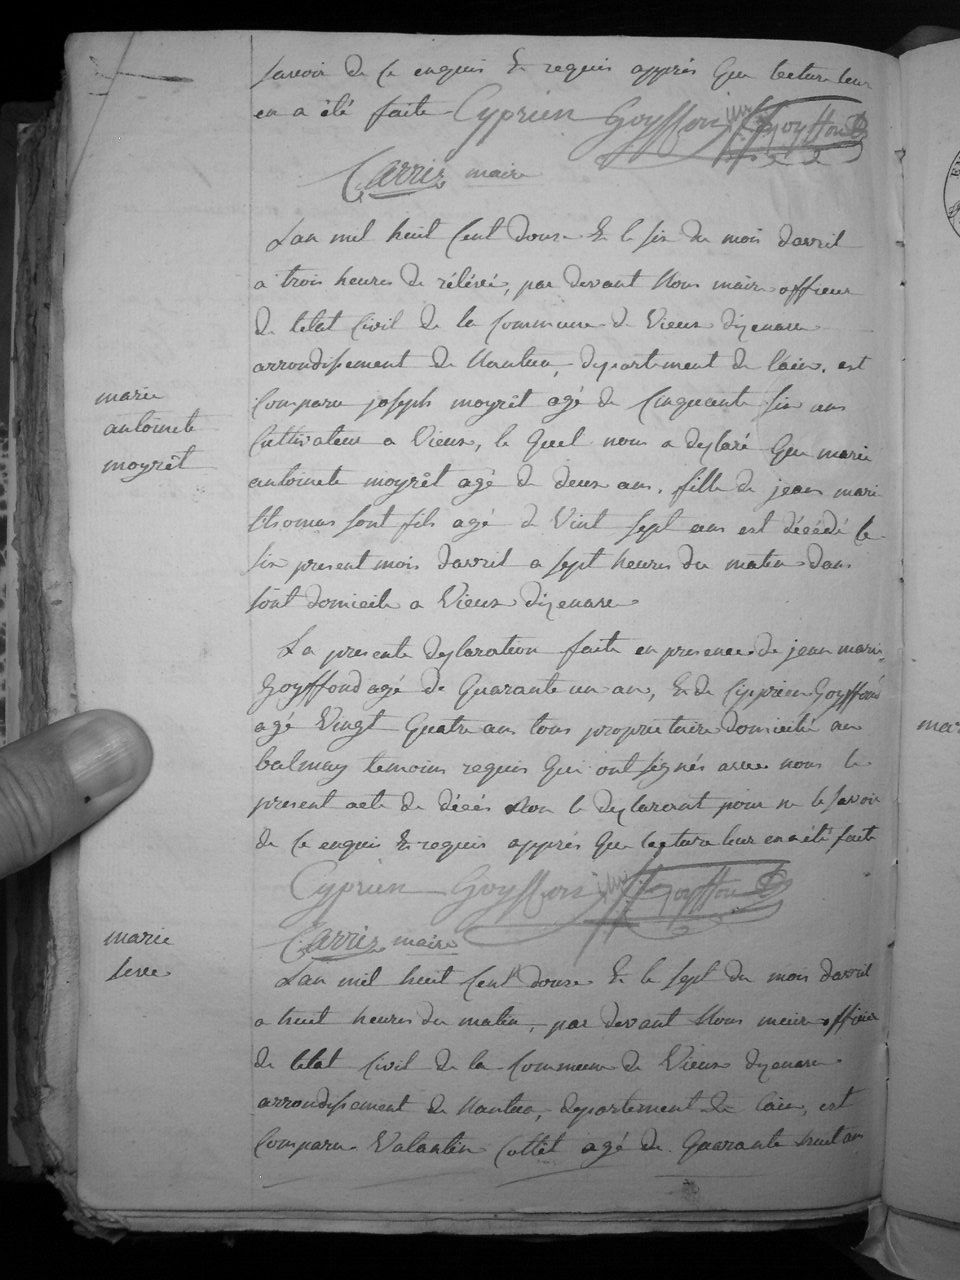 savoir de ce enquis et requis apprés que lecture leur
en a été faite Cyprien Goyffon jm Goyffon
Carrier maire
Lan mil huit cent douze et le six du mois davril
a trois heures de rélévé, par devant nous maire officier
de letat civil de la commune de Vieux dizenave
arrondissement de Nantua, departement de lain, est
comparu joseph moyrêt agé de cinquante six ans
marie
antoinete
moyrêt
cultivateur a Vieux, le quel nous a déclaré que marie
antoinete moyrêt agé de deux ans, fille de jean marie
thomas sont fils agé de vint sept ans est décédé le
six present mois davril a sept heures du matin dans
sont domicile a Vieux dizenave
La presente declaration faite en presence de jean marie
Goyffond agé de quarante un an, et de cipprien Goyffond
agé vingt quatre ans tous proprietaire domicilié au
balmay temoins requis qui ont signés avec nous le
present acte de décés non le declarent pour ne le savoir
de ce enquis et requis apprés que lecture leur en a été faite
Cyprien Goyffon jm Goyffon
Carrier maire
marie
Lan mil huit cent douze et le sept du mois davril
a huit heures du matin, par devant nous maire officier
de letat civil de la commune de Vieux dizenave
arrondissement de Nantua, departement de lain, est
comparu Valantin Cottêt agé de quarante huit an
mar